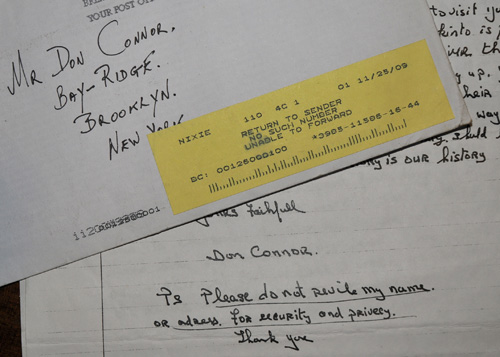 YOUR POST OF
MR DON CONNOR.
BAY-RIDGE.
BROOKLYN.
NEW YORK
NIXIE 110 4C 1 01 11/25/09
RETURN TO SENDER
NO SUCH NUMBER
UNABLE TO FORWARD
BC: *3905-11506-16-44
to visit
into is
way
is our history
Yours Faithfull
Don Connor.
Ps Please do not revile my name.
or adress. For security and privecy.
Thank you